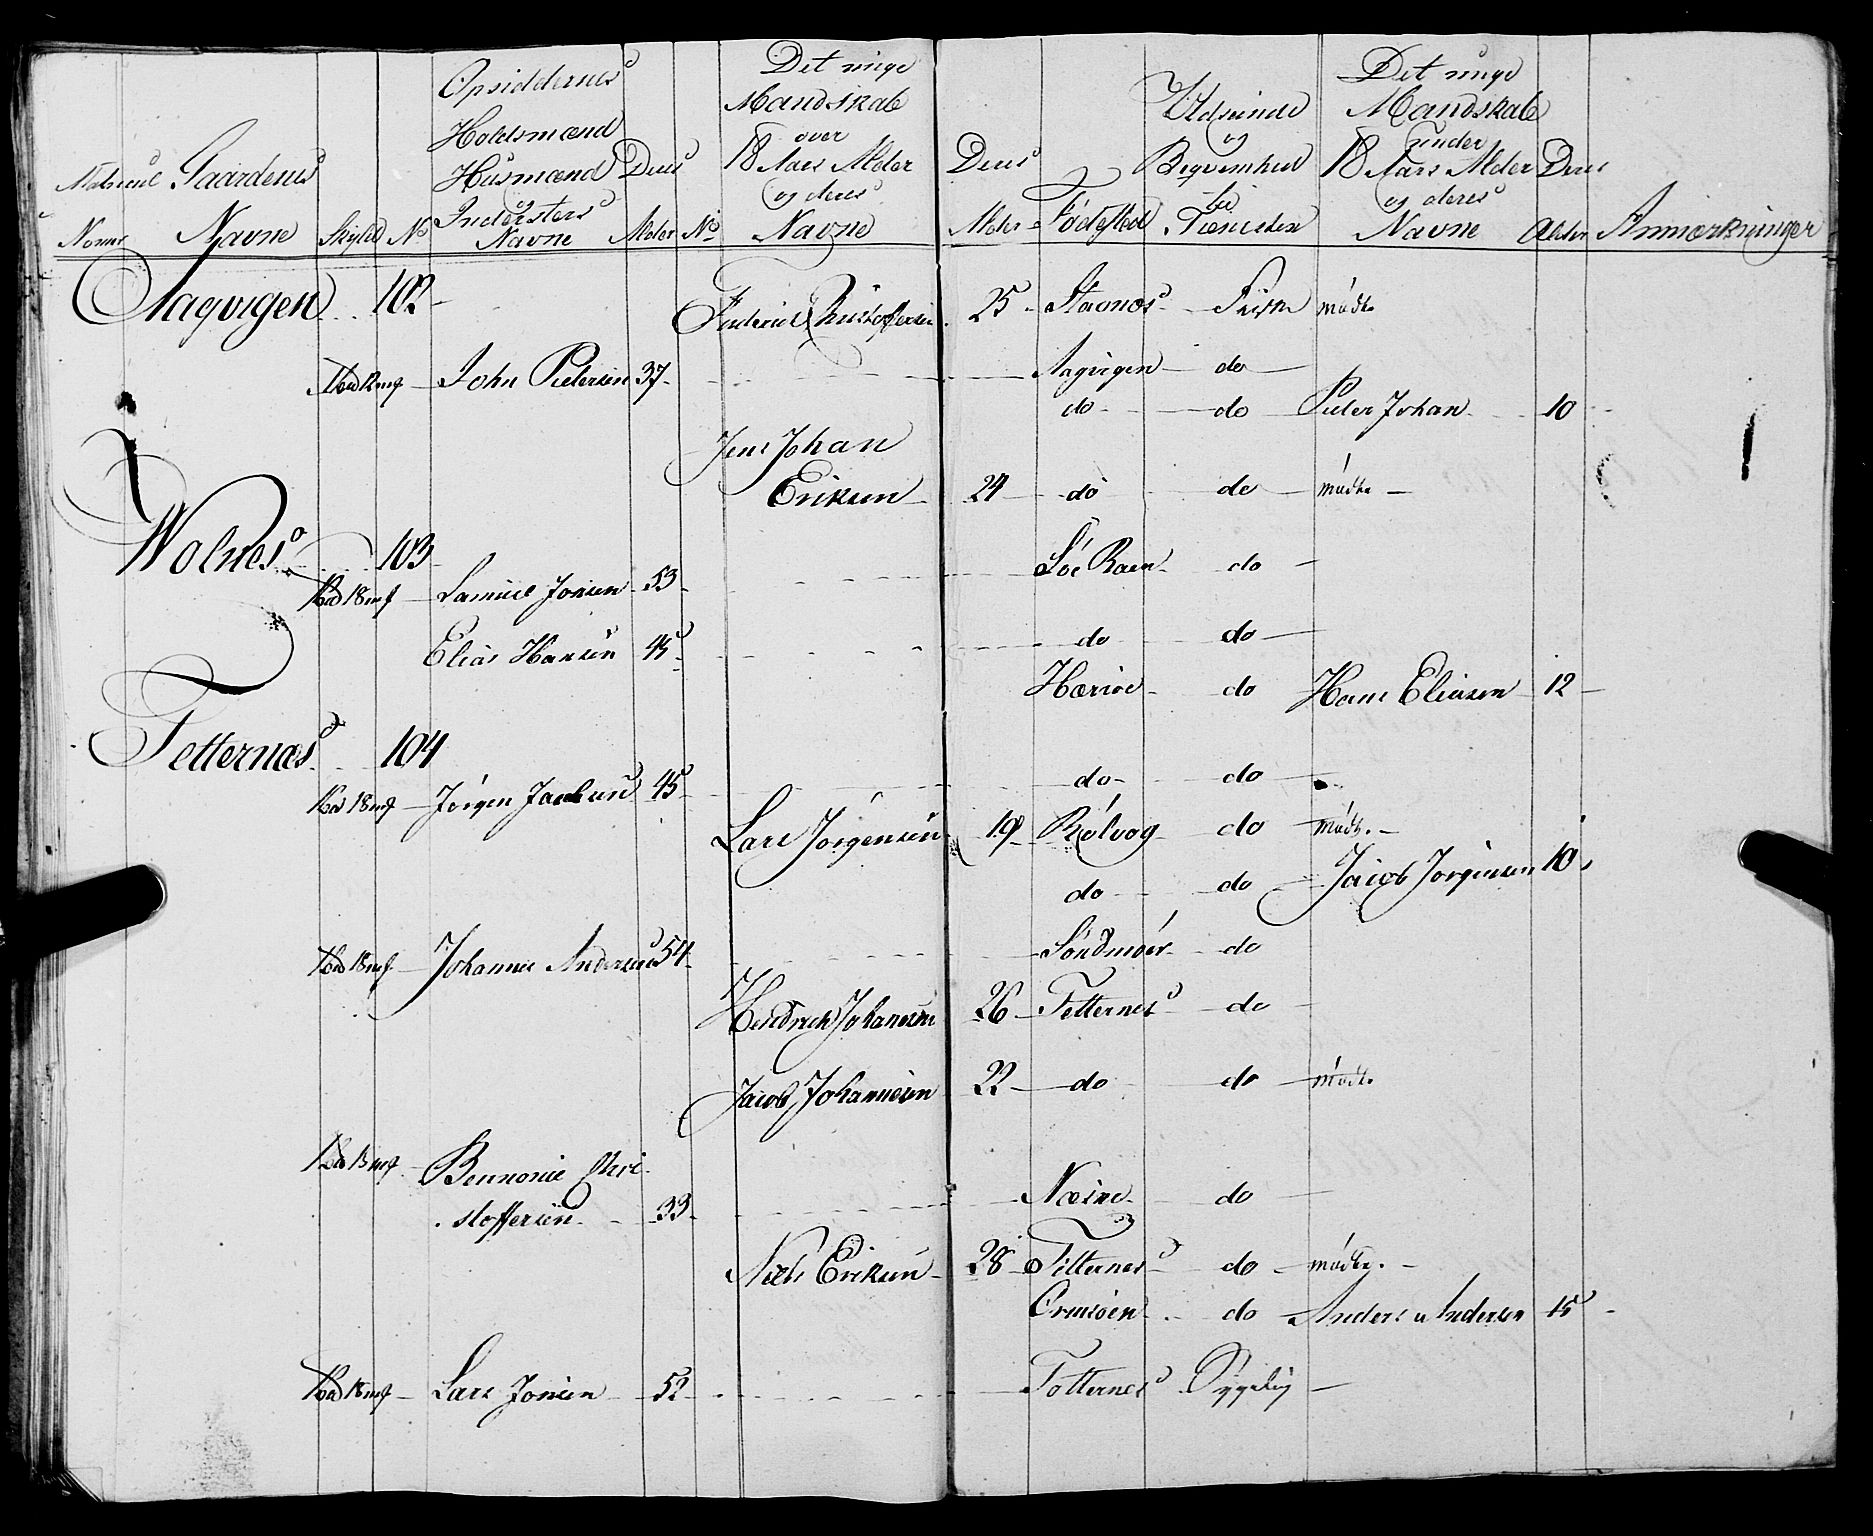 Matricul Nomr
Gaardenes Navne
Skyld
No
Opsiddernes Holdsmænd Husmænd og Indersters Navne
Deres Alder
No
Det unge Mandskab over 18 Aars Alder og deres Navne
Deres Alder
Fødested
Udseende og Beqvemhed til Tienesten
Det unge Mandskab under 18 Aars Alder og deres Navne
Deres Alder
Anmærkninger
Aagvigen 102 Friderich Christoffersen 25 Stavnæs Frisk mødte
John Pedersen 37 Aagvigen do
do do Peder Johan 10
Jens Johan
Eriksen 24 do do mødte
Wolnes 103
Samuel Jonsen 53 Söe Raen do
Elias Hansen 45 do do
Hærröe do Hans Eliasen 12
Tetternæs 104
Jørgen Jacobsen 45 do do
Lars Jørgensen 19 Rölvog do mødte
do do Jacob Jørgensen 10
Johannes Andersen 54 Söndmöer do
Hendrich Johannesen 26 Tetternes do
Jacob Johannesen 22 do do mødte
Bennonie Chri
stoffersen 33 Næsne do
Niels Eriksen 28 Tetternes do mødte
Ormsöen do Anders Andersen 15
Lars Jonsen 52 Totternes Sygelig